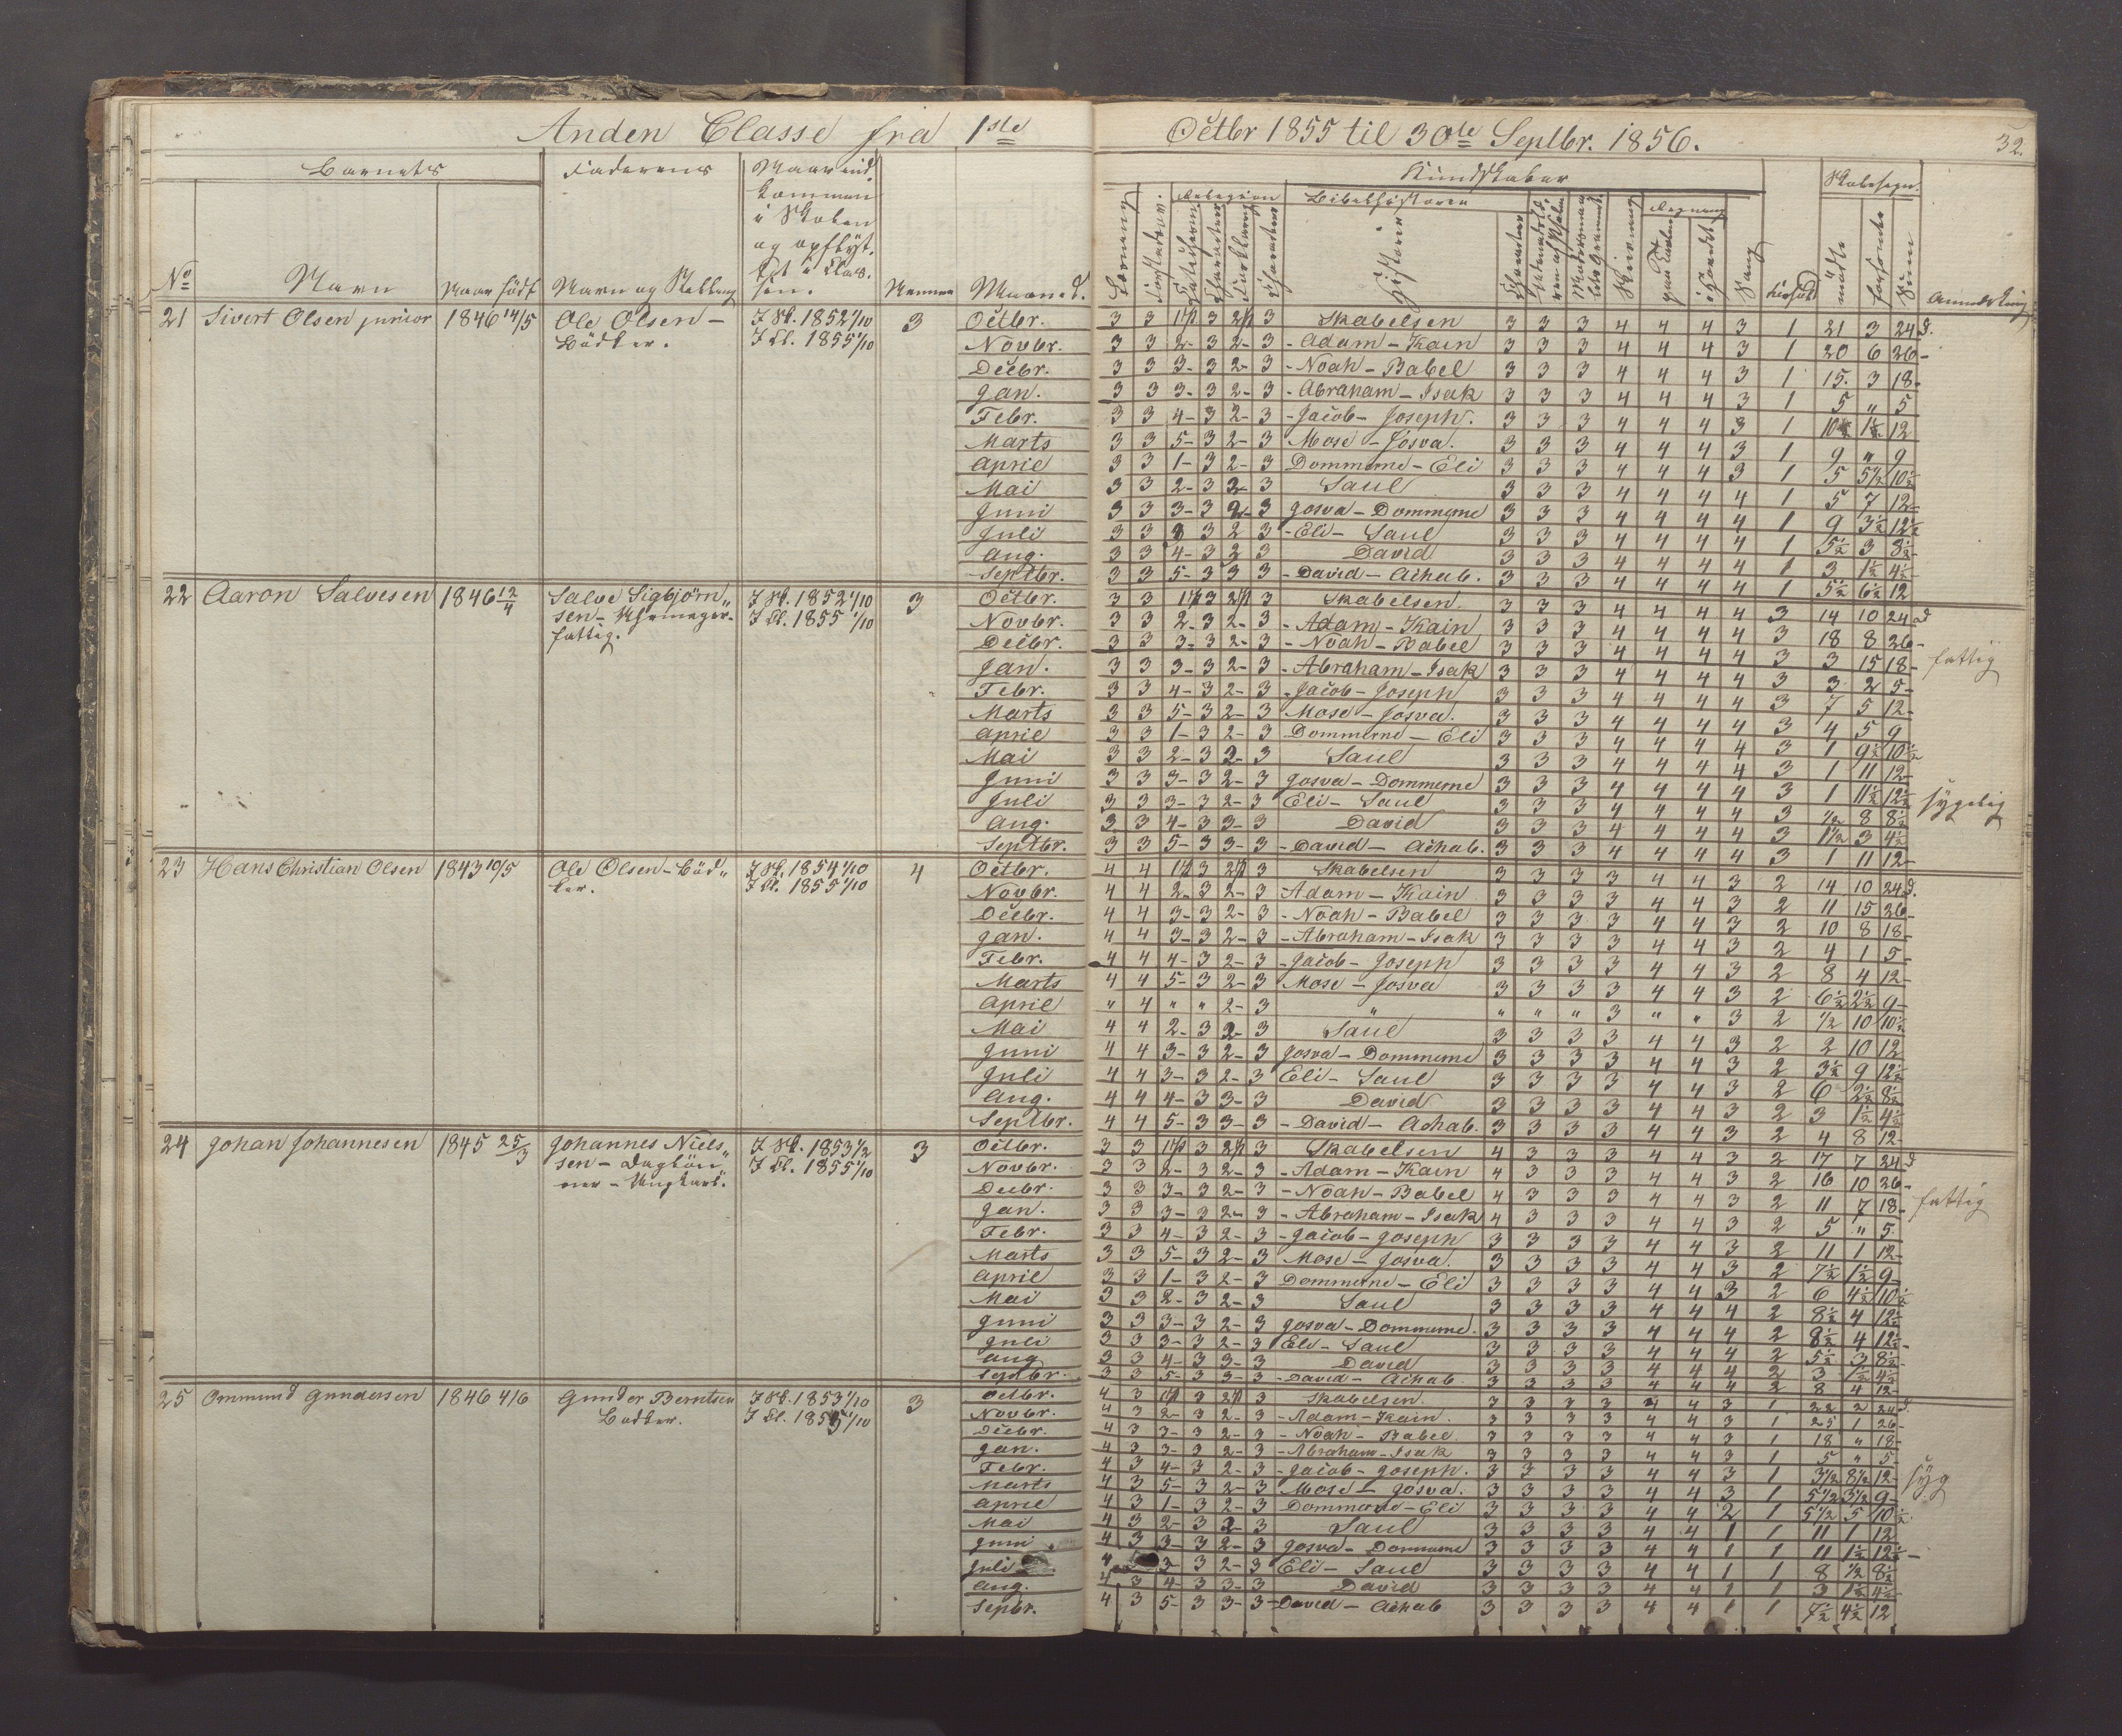 Anden Classe fra 1ste Octbr 1855 til 30te Septbr. 1856. 32.
Barnets Faderens Naar ind- Kundskaber Skolesøgn.
kommen Religion Bibelhistorie
i Skolen Regning
og opflyt-
tet i Clas-
No Navn Naar født Navn og Stilling sen. Maaned. Historie Sang
21 Sivert Olsen junior 1846 14/5 Ole Olsen – I Sk. 1852 1/10 3 Octbr. 3 3 1 1/2 3 2 1/2 3 Skabelsen 3 3 3 4 4 4 3 1 21 3 24 d.
Bödker. I Cl. 1855 1/10 Novbr. 3 3 2- 3 2- 3 - Adam – Kain 3 3 3 4 4 4 3 1 20 6 26 -
Decbr. 3 3 3- 3 2- 3 - Noah – Babel 3 3 3 4 4 4 3 1 15 3 18 -
Jan. 3 3 3- 3 2- 3 - Abraham – Isak 3 3 3 4 4 4 3 1 5 " 5
Febr. 3 3 4- 3 2- 3 - Jacob – Joseph. 3 3 3 4 4 4 3 1 10 1/2 1 1/2 12
Marts 3 3 5- 3 2- 3 Mose – Josva. 3 3 3 4 4 4 3 1 9 " 9
April 3 3 1- 3 2- 3 Dommerne – Eli 3 3 3 4 4 4 3 1 5 5 1/2 10 1/2
Mai 3 3 2- 3 2- 3 Saul 3 3 3 4 4 4 4 1 5 7 12 -
Juni 3 3 3- 3 2- 3 Josva – Dommerne 3 3 3 4 4 4 4 1 9 3 1/2 12 1/2
Juli 3 3 3 3 2 3 - Eli – Saul 3 3 3 4 4 4 4 1 5 1/2 3 8 1/2 -
Aug. 3 3 4- 3 2 3 David 3 3 3 4 4 4 4 1 3 1 1/2 4 1/2
Septbr. 3 3 5- 3 3 3 - David – Achab. 3 3 3 4 4 4 4 1 5 1/2 6 1/2 12
22 Aaron Salvesen 1846 12/4 Salve Sigbjörn„ I Sk. 1852 1/10 3 Octbr. 3 3 1 1/2 3 2 1/2 3 Skabelsen. 3 3 3 4 4 4 4 3 14 10 24 d
sen – Uhrmager- I Cl. 1855 1/10 Novbr. 3 3 2- 3 2- 3 - Adam – Kain 3 3 3 4 4 4 4 3 18 8 26 -
fattig. Decbr. 3 3 3- 3 2- 3 - Noah – Babel 3 3 3 4 4 4 4 3 3 15 18 - fattig
Jan. 3 3 3- 3 2- 3 - Abraham – Isak 3 3 3 4 4 4 4 3 3 2 5 -
Febr. 3 3 4- 3 2- 3 - Jacob – Joseph 3 3 3 4 4 4 4 3 7 5 12 -
Marts 3 3 5- 3 2- 3 Mose – Josva. 3 3 3 4 4 4 4 3 4 5 9
April 3 3 1- 3 2- 3 Dommerne – Eli 3 3 3 4 4 4 4 3 1 9 1/2 10 1/2
Mai 3 3 2- 3 2- 3 Saul 3 3 3 4 4 4 4 3 1 11 12 -
Juni 3 3 3- 3 2- 3 Josva – Dommerne 3 3 3 4 4 4 4 3 1 11 1/2 12 1/2 sygelig
Juli 3 3 3- 3 2- 3 Eli – Saul 3 3 3 4 4 4 4 3 1/2 8 8 1/2
Aug. 3 3 4- 3 3- 3 David 3 3 3 4 4 4 4 3 1 1/2 3 4 1/2
Septbr. 3 3 5- 3 3- 3 - David – Achab. 3 3 3 4 4 4 4 3 1 11 12 -
23 Hans Christian Olsen 1843 10/5 Ole Olsen – Böd„ I Sk. 1854 1/10 4 Octbr. 4 4 1 1/2 3 2 1/2 3 Skabelsen 3 3 3 3 4 4 3 2 14 10 24 d.
ker. I Cl. 1855 1/10 Novbr. 4 4 2- 3 2- 3 - Adam – Kain 3 3 3 3 4 4 3 2 11 15 26 -
Decbr. 4 4 3- 3 2- 3 - Noah – Babel 3 3 3 3 4 4 3 2 10 8 18 -
Jan. 4 4 3- 3 2- 3 - Abraham – Isak 3 3 3 3 4 4 3 2 4 1 5 -
Febr. 4 4 4- 3 2- 3 - Jacob – Joseph 3 3 3 3 4 4 3 2 8 4 12 -
Marts 4 4 5- 3 2- 3 Mose – Josva 3 3 3 3 4 4 3 2 6 1/2 2 1/2 9 -
April " 4 " " 2- 3 " " " " 3 " " 3 2 1/2 10 10 1/2
Mai 4 4 2- 3 2- 3 Saul 3 3 3 3 4 4 3 2 2 10 12
Juni 4 4 3- 3 2- 3 Josva – Dommerne 3 3 3 3 4 4 3 2 3 1/2 9 12 1/2
Juli 4 4 3- 3 2- 3 Eli – Saul 3 3 3 3 4 4 3 2 6 2 1/2 8 1/2
Aug. 4 4 4- 3 3- 3 David 3 3 3 3 4 4 3 2 3 1 1/2 4 1/2
Septbr. 4 4 5- 3 3- 3 - David – Achab. 3 3 3 3 4 4 3 2 4 8 12 -
24 Johan Johannesen 1845 25/3 Johannes Niels„ I Sk. 1853 1/2 3 Octbr. 3 3 1 1/2 3 2 1/2 3 Skabelsen 4 3 3 3 4 4 3 2 17 7 24 d
sen – Daglön„ I Cl. 1855 1/10 Novbr. 3 3 2- 3 2- 3 - Adam – Kain 4 3 3 3 4 4 3 2 16 10 26 -
ner – Ungkarl. Decbr. 3 3 3- 3 2- 3 - Noah – Babel 4 3 3 3 4 4 3 2 11 7 18 - fattig
Jan. 3 3 3- 3 2- 3 - Abraham – Isak 4 3 3 3 4 4 3 2 5 " 5
Febr. 3 3 4- 3 2- 3 - Jacob – Joseph 3 3 3 3 4 4 3 2 11 1 12 -
Marts 3 3 5- 3 2- 3 Mose – Josva. 3 3 3 3 4 4 3 2 7 1/2 1 1/2 9 -
April 3 3 1- 3 2- 3 Dommerne – Eli 3 3 3 3 4 4 3 2 6 4 1/2 10 1/2
Mai 3 3 2- 3 2- 3 Saul 3 3 3 3 4 4 4 2 8 1/2 4 12 1/2
Juni 3 3 3- 3 2- 3 Josva – Dommerne. 3 3 3 3 4 4 4 2 8 1/2 4 12 1/2 -
Juli 3 3 3- 3 2- 3 Eli – Saul 3 3 3 3 4 4 4 2 5 1/2 3 8 1/2 -
Aug 3 3 4- 3 3- 3 David 3 3 3 3 4 4 4 2 3 1 1/2 4 1/2
Septbr. 3 3 5- 3 3- 3 - David – Achab. 3 3 3 3 4 4 4 2 8 4 12 -
25 Ommund Gundersen 1846 4/6 Gunder Berntsen I Sk. 1853 1/10 3 Octbr. 4 3 1 1/2 3 2 1/2 3 Skabelsen. 3 3 3 3 4 4 3 1 22 2 24 d.
Bödker. I Cl. 1855 1/10 Novbr. 4 3 2- 3 2- 3 - Adam – Kain. 3 3 3 3 4 4 3 1 25 1 26 -
Decbr. 4 3 3- 3 2- 3 - Noah – Babel 3 3 3 3 4 4 3 1 18 " 18 -
Jan. 4 3 3- 3 2- 3 - Abraham – Isak 3 3 3 3 4 4 3 1 5 " 5 -
Febr. 4 3 4- 3 2- 3 - Jacob – Joseph. 3 3 3 3 4 4 3 1 3 1/2 8 1/2 12 - syg
Marts 4 3 5- 3 2- 3 Mose – Josva. 3 3 3 3 4 4 3 1 5 1/2 3 1/2 9 -
April 4 3 1- 3 2- 3 Dommerne – Eli 3 3 3 3 4 4 2 1 5 1/2 5 10 1/2
Mai 4 3 2- 3 2- 3 Saul 3 3 3 3 4 4 1 1 11 1 12
Juni 4 3 3- 3 2- 3 Josva – Dommerne 3 3 3 3 4 4 1 1 11 1 1/2 12 1/2 -
Juli 4 3- 3 2- 3 Eli – Saul 3 3 3 3 4 4 1 1 8 1/2 8 1/2
Aug. 4 3 4- 3 3- 3 David 3 3 3 3 4 4 1 1 3 1 1/2 4 1/2
Sepbr. 4 3 5- 3 3- 3 - David – Achab 3 3 3 3 4 4 1 1 7 1/2 4 1/2 12